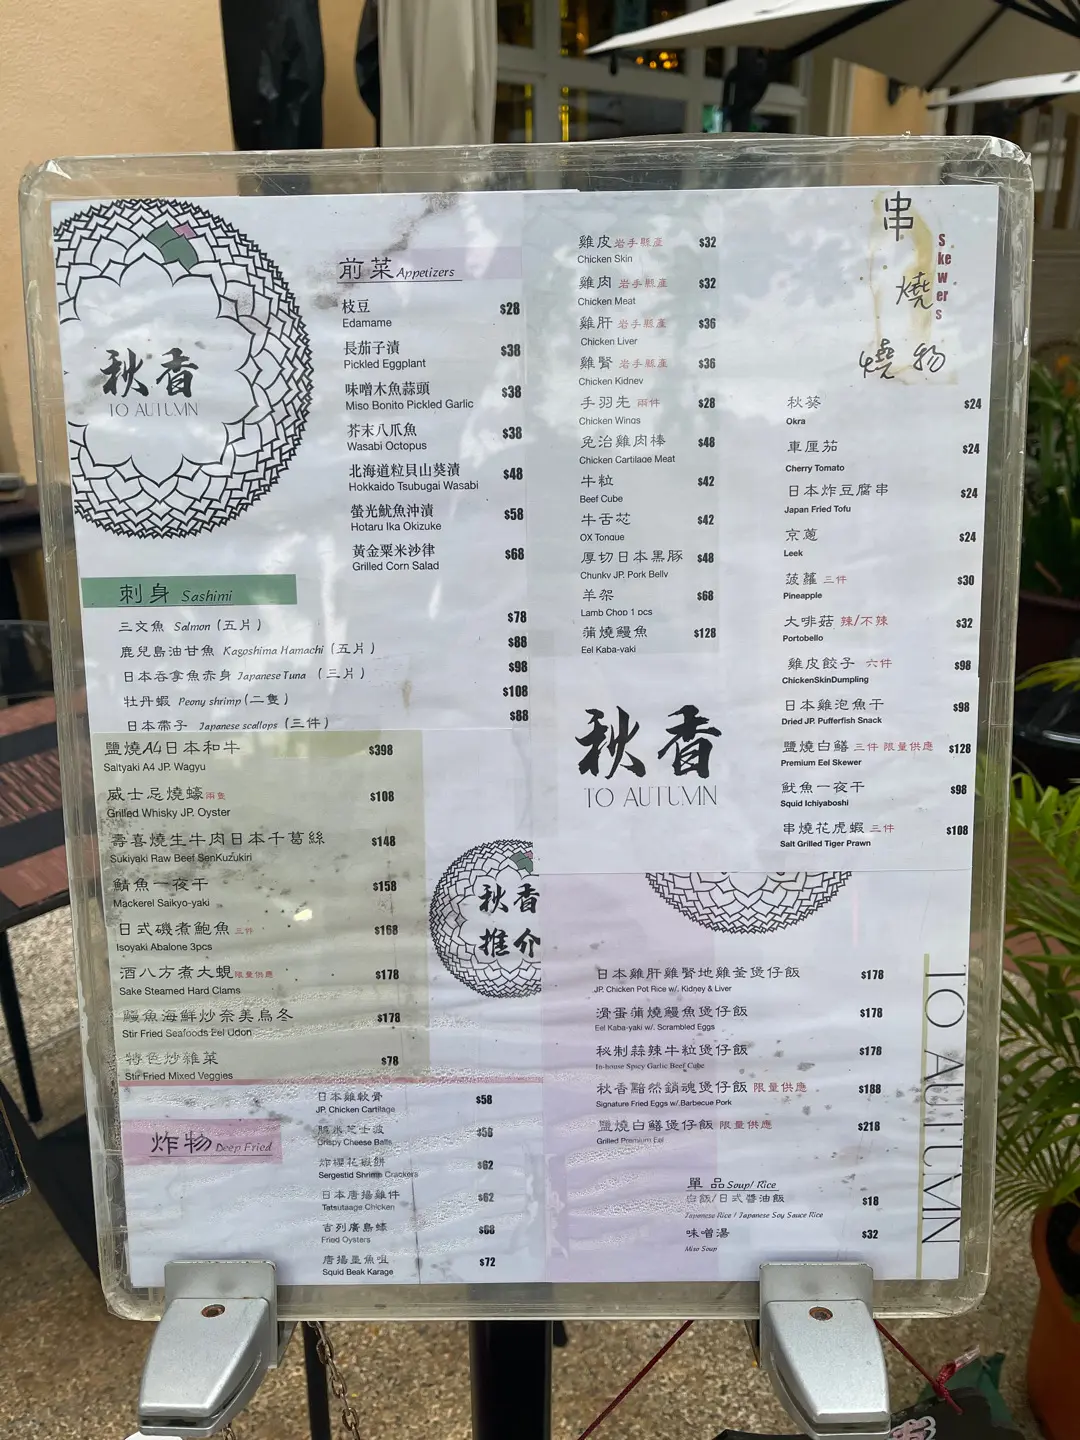 秋香
TO AUTUMN
前菜 Appetizers
枝豆 $28
Edamame
長茄子漬 $38
Pickled Eggplant
味噌木魚蒜頭 $38
Miso Bonito Pickled Garlic
芥末八爪魚 $38
Wasabi Octopus
北海道粒貝山葵漬 $48
Hokkaido Tsubugai Wasabi
螢光魷魚沖漬 $58
Hotaru Ika Okizuke
黃金粟米沙律 $68
Grilled Corn Salad
刺身 Sashimi
三文魚 Salmon (五片) $78
鹿兒島油甘魚 Kagoshima Hamachi (五片) $88
日本吞拿魚赤身 Japanese Tuna (三片) $98
牡丹蝦 Peony shrimp (二隻) $108
日本帶子 Japanese scallops (三件) $88
鹽燒A4日本和牛 $398
Saltyaki A4 JP. Wagyu
威士忌燒蠔 兩隻 $108
Grilled Whisky JP. Oyster
壽喜燒生牛肉日本千葛絲 $148
Sukiyaki Raw Beef SenKuzukiri
鯖魚一夜干 $158
Mackerel Saikyo-yaki
日式磯煮鮑魚 三件 $168
Isoyaki Abalone 3pcs
酒八方煮大蜆 限量供應 $178
Sake Steamed Hard Clams
鰻魚海鮮炒奈美烏冬 $178
Stir Fried Seafoods Eel Udon
特色炒雜菜 $78
Stir Fried Mixed Veggies
秋香
推介
炸物 Deep Fried
日本雞軟骨 $58
JP. Chicken Cartilage
芝士波 $58
Crispy Cheese Balls
炸櫻花蝦餅 $62
Sergestid Shrimp Crackers
日本唐揚雞件 $62
Tatsutaage Chicken
吉列廣島蠔 $68
Fried Oysters
唐揚墨魚咀 $72
Squid Beak Karage
串燒
燒物
Skewers
雞皮 岩手縣產 $32
Chicken Skin
雞肉 岩手縣產 $32
Chicken Meat
雞肝 岩手縣產 $36
Chicken Liver
雞腎 岩手縣產 $36
Chicken Kidney
手羽先 兩件 $28
Chicken Wings
免治雞肉棒 $48
Chicken Cartilage Meat
牛粒 $42
Beef Cube
牛舌芯 $42
OX Tongue
厚切日本黑豚 $48
Chunky JP. Pork Belly
羊架 $68
Lamb Chop 1 pcs
蒲燒鰻魚 $128
Eel Kaba-yaki
秋葵 $24
Okra
車厘茄 $24
Cherry Tomato
日本炸豆腐串 $24
Japan Fried Tofu
京蔥 $24
Leek
菠蘿 三件 $30
Pineapple
大啡菇 辣/不辣 $32
Portobello
雞皮餃子 六件 $98
ChickenSkinDumpling
日本雞泡魚干 $98
Dried JP. Pufferfish Snack
鹽燒白鱔 三件 限量供應 $128
Premium Eel Skewer
魷魚一夜干 $98
Squid Ichiyaboshi
串燒花虎蝦 三件 $108
Salt Grilled Tiger Prawn
秋香
TO AUTUMN
日本雞肝雞腎地雞釜煲仔飯 $178
JP. Chicken Pot Rice w/. Kidney & Liver
滑蛋蒲燒鰻魚煲仔飯 $178
Eel Kaba-yaki w/. Scrambled Eggs
秘制蒜辣牛粒煲仔飯 $178
In-house Spicy Garlic Beef Cube
秋香黯然銷魂煲仔飯 限量供應 $188
Signature Fried Eggs w/.Barbecue Pork
鹽燒白鱔煲仔飯 限量供應 $218
Grilled Premium Eel
單品 Soup/ Rice
白飯/日式醬油飯 $18
Japanese Rice / Japanese Soy Sauce Rice
味噌湯 $32
Miso Soup
TO AUTUMN